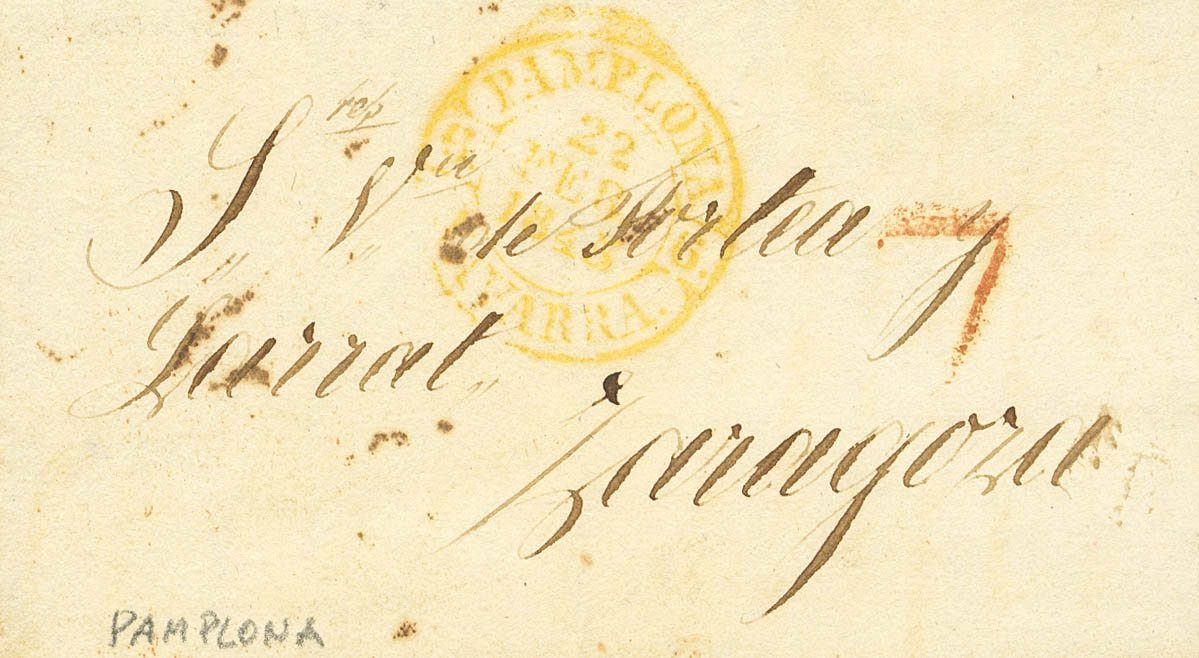 PAMPLONA
22
FEB
NAVARRA.
Sres Vu de Portea y
Larral
Zaragoza
7
PAMPLONA